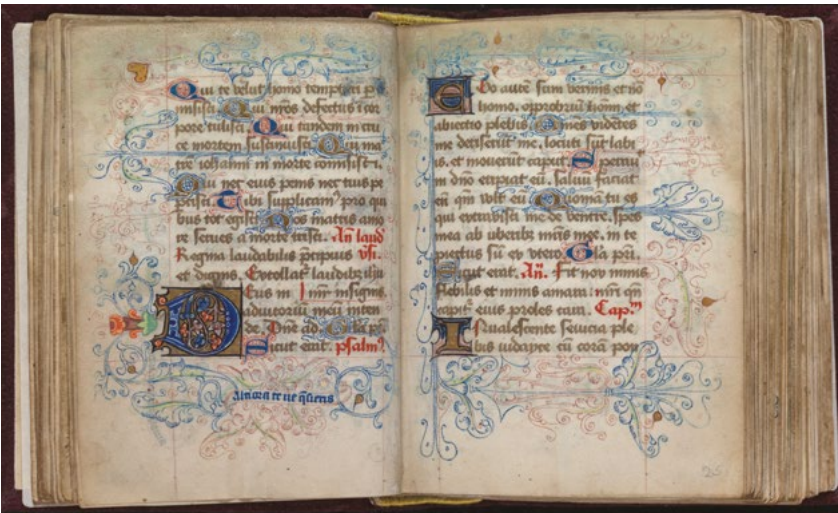 Qui te velut homo temptari p
misisti. Qui nr̃os defectus ī cor
pore tulisti. Qui tandem in cru
ce mortem sustinuisti. Qui ma
trē iohanni in morte commisisti.
Qui nec eius penis nec tuis pe
Tibi supplicam᷒ pro qui
bus tot egisti. Nos matris amo
re serves a morte tristi. An̄ laud
Regina laudabilis
et dignis. Extollat᷒ laudibȝ
eius in insignis.
Deus ī adiutoriū meū inten
de. Dn̄e ad. Gl̄a p̄.
Sicut erat. psalm᷒
Ego autē sum vermis et nō
homo. opprobriū hoīm et
abiectio plebis. Om̄es vidētes
me deriserūt me. locuti sūt labi
is. et moverūt caput. Speravit
in dn̄o eripiat eū. salvū faciat
eū qm̄ vult eū. Quoniā tu es
qui extraxisti me de ventre. spes
mea ab uberibȝ mr̄is mee. in te
proiectus sū ex utero. Gl̄a pr̄i.
Sicut erat. An̄. Fit nox nimis
flebilis et nimis amara. mr̄i qn̄
capit᷒ eius proles cara. Capᵐ
Inualescente sevicia ple
bis iudayce cū corā pon